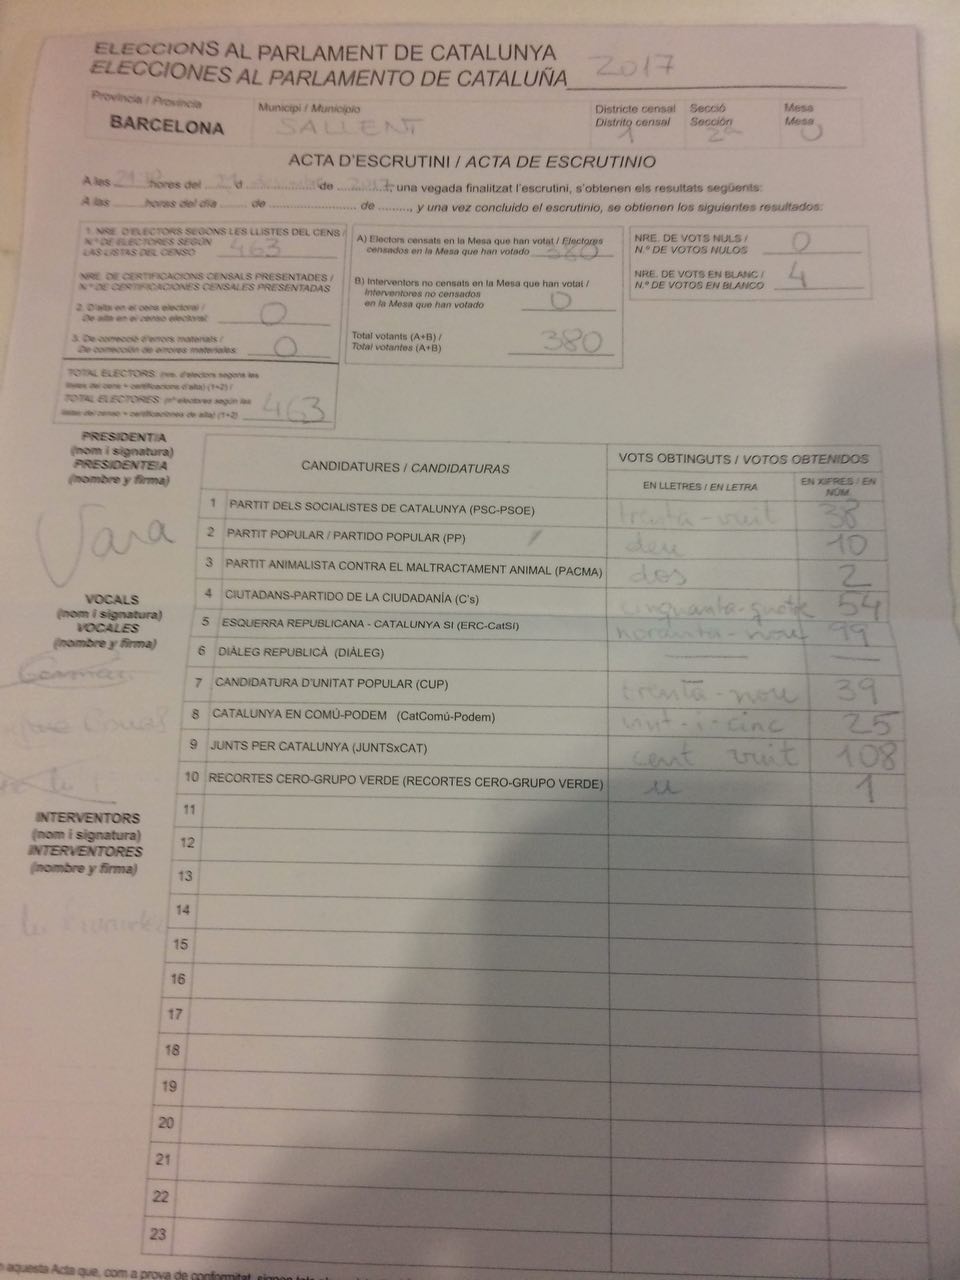 ELECCIONS AL PARLAMENT DE CATALUNYA
ELECCIONES AL PARLAMENTO DE CATALUÑA 2017
Provincia / Provincia
BARCELONA
Municipi / Municipio
SALLENT
Districte censal
Distrito censal
1
Secció
Sección
2ª
Mesa
Mesa
U
ACTA D'ESCRUTINI / ACTA DE ESCRUTINIO
A les hores del d de 2017, una vegada finalitzat l'escrutini, s'obtenen els resultats següents:
A las horas del día de de, y una vez concluido el escrutinio, se obtienen los siguientes resultados:
1. NRE. D'ELECTORS SEGONS LES LLISTES DEL CENS /
N.º DE ELECTORES SEGÚN
LAS LISTAS DEL CENSO 463
NRE. DE CERTIFICACIONS CENSALS PRESENTADES /
N.º DE CERTIFICACIONES CENSALES PRESENTADAS
2. D'alta en el cens electoral /
De alta en el censo electoral: 0
3. De correcció d'errors materials /
De corrección de errores materiales: 0
TOTAL ELECTORS: (nre. d'electors segons les
llistes del cens + certificacions d'alta) (1+2) /
TOTAL ELECTORES: (nº electores según las
listas del censo + certificaciones de alta) (1+2) 463
A) Electors censats en la Mesa que han votat / Electores
censados en la Mesa que han votado 380
B) Interventors no censats en la Mesa que han votat /
Interventores no censados
en la Mesa que han votado 0
Total votants (A+B) /
Total votantes (A+B) 380
NRE. DE VOTS NULS /
N.º DE VOTOS NULOS 0
NRE. DE VOTS EN BLANC /
N.º DE VOTOS EN BLANCO 4
PRESIDENT/A
(nom i signatura)
PRESIDENTE/A
(nombre y firma)
VOCALS
(nom i signatura)
VOCALES
(nombre y firma)
INTERVENTORS
(nom i signatura)
INTERVENTORES
(nombre y firma)
CANDIDATURES / CANDIDATURAS
VOTS OBTINGUTS / VOTOS OBTENIDOS
EN LLETRES / EN LETRA
EN XIFRES / EN
NÚM.
1 PARTIT DELS SOCIALISTES DE CATALUNYA (PSC-PSOE) trenta-vuit 38
2 PARTIT POPULAR / PARTIDO POPULAR (PP) deu 10
3 PARTIT ANIMALISTA CONTRA EL MALTRACTAMENT ANIMAL (PACMA) dos 2
4 CIUTADANS-PARTIDO DE LA CIUDADANÍA (C's) cinquanta-quatre 54
5 ESQUERRA REPUBLICANA - CATALUNYA SI (ERC-CatSí) noranta-nou 99
6 DIÀLEG REPUBLICÀ (DIÀLEG)
7 CANDIDATURA D'UNITAT POPULAR (CUP) trenta-nou 39
8 CATALUNYA EN COMÚ-PODEM (CatComú-Podem) vint-i-cinc 25
9 JUNTS PER CATALUNYA (JUNTSxCAT) cent vuit 108
10 RECORTES CERO-GRUPO VERDE (RECORTES CERO-GRUPO VERDE) u 1
11
12
13
14
15
16
17
18
19
20
21
22
23
aquesta Acta que, com a prova de conformitat, signen